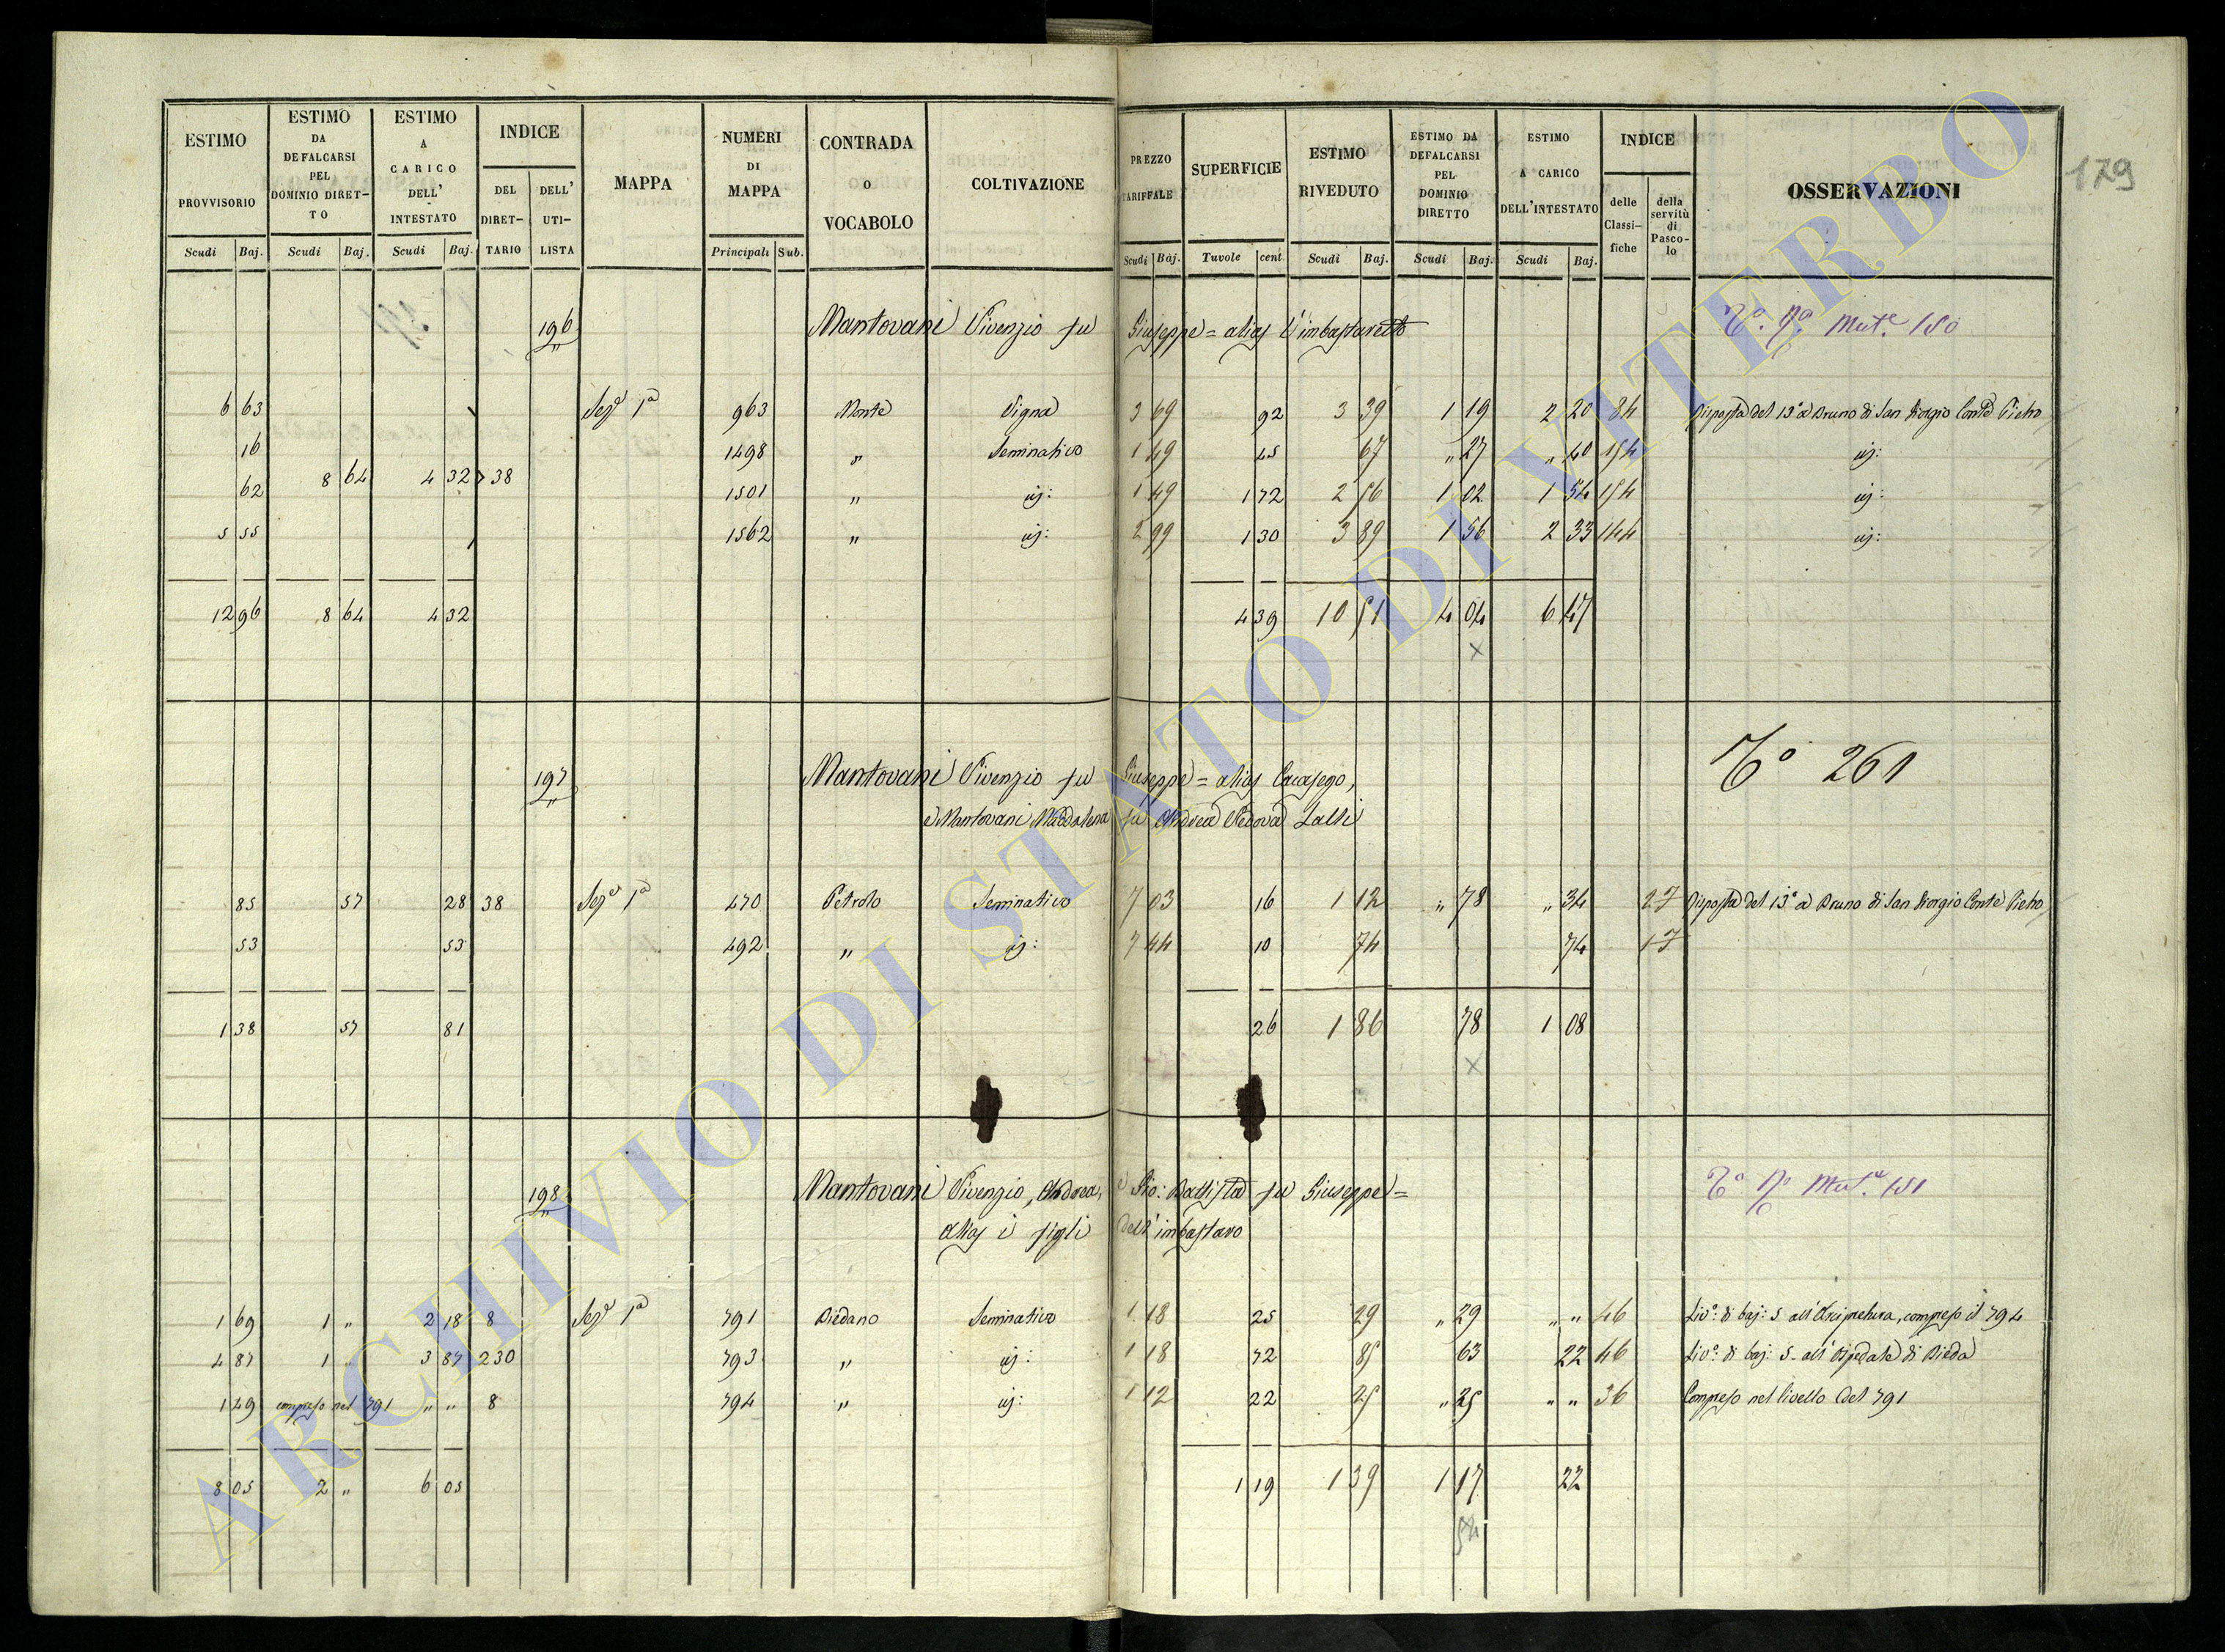 ESTIMO PROVVISORIO Scudi Baj.
ESTIMO DA DEFALCARSI PEL DOMINIO DIRETTO Scudi Baj.
ESTIMO A CARICO DELL' INTESTATO Scudi Baj.
INDICE DEL DIRETTARIO DELL' UTILISTA
MAPPA
NUMERI DI MAPPA Principali Sub.
CONTRADA O VOCABOLO
COLTIVAZIONE
PREZZO TARIFFALE Scudi Baj.
SUPERFICIE Tavole cent.
ESTIMO RIVEDUTO Scudi Baj.
ESTIMO DA DEFALCARSI PEL DOMINIO DIRETTO Scudi Baj.
ESTIMO A CARICO DELL'INTESTATO Scudi Baj.
INDICE delle Classifiche della servitù di Pascolo
OSSERVAZIONI
179
196 Mantovani Vivenzio fu Giuseppe = alias l'imbastaretto Mut.e 150
6 63 Sez.e 1a 963 Monte Vigna 3 69 92 3 39 1 19 2 20 84 Risposta del 13.o a Bruno di San Giorgio Conte Pietro
16 1498 " Seminativo 1 49 45 67 " 27 " 40 154 id:
62 8 64 4 32 38 1501 " id: 1 49 1 72 2 56 1 02 1 54 154 id:
5 55 1562 " id: 2 99 1 30 3 89 1 56 2 33 144 id:
12 96 8 64 4 32 4 39 10 51 4 04 6 47
x
197 Mantovani Vivenzio fu Giuseppe = alias Cacasego, 261
e Mantovani Maddalena fu Andrea Vedova Lalli
85 57 28 38 Sez.e 1a 470 Petrolo Seminativo 7 03 16 1 12 " 78 " 34 27 Risposta del 13.o a Bruno di San Giorgio Conte Pietro
53 53 492 " id: 7 44 10 74 74 17
1 38 57 81 26 1 86 78 1 08
x
198 Mantovani Vivenzio, Andrea, e Gio: Battista fu Giuseppe = Mut.e 151
alias i figli dell'imbastaro
1 69 1 " 2 18 8 Sez.e 1a 791 Biedano Seminativo 1 18 25 29 " 29 " " 46 Liv.o di baj: 5 all'Arcipretura, compreso il 794
4 87 1 " 3 87 230 793 " id: 1 18 72 85 63 22 46 Liv.o di baj: 5 - all'Ospedale di Bieda
1 49 compreso nel 791 " " 8 794 " id: 1 12 22 25 " 25 " " 36 Compreso nel livello del 791
8 05 2 " 6 05 1 19 1 39 1 17 22
ARCHIVIO DI STATO DI VITERBO